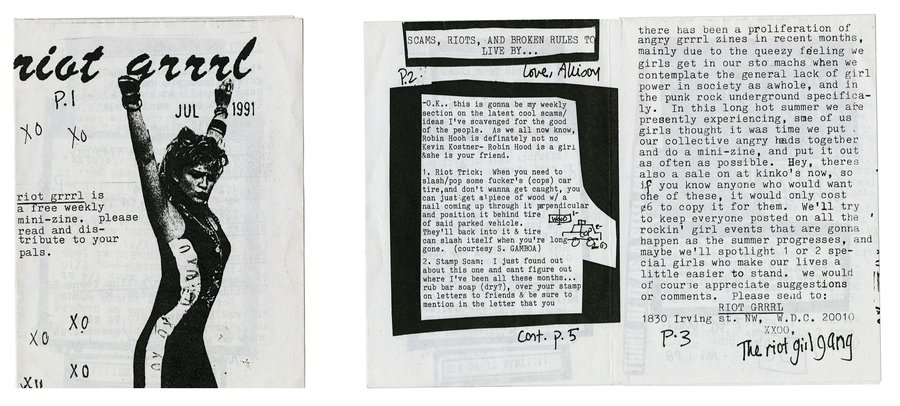 riot grrrl
p.1
JUL 1991
XO XO
riot grrrl is
a free weekly
mini-zine. please
read and dis-
tribute to your
pals.
XO XO
XO
SCAMS, RIOTS, AND BROKEN RULES TO
LIVE BY...
p.2:
Love, Allison
-O.K.. this is gonna be my weekly
section on the latest cool scams/
ideas I've scavenged for the good
of the people. As we all now know,
Robin Hooh is definately not no
Kevin Kostner- Robin Hood is a girl
&she is your friend.
1. Riot Trick: When you need to
slash/pop some fucker's (cops) car
tire,and don't wanna get caught, you
can just get a piece of wood w/ a
nail coming up through it prpendicular
and position it behind tire
of said parked vehicle.
They'll back into it & tire
can slash itself when you're long
gone. (courtesy S. GAMBOA)
2. Stamp Scam: I just found out
about this one and cant figure out
where I've been all these months...
rub bar soap (dry?), over your stamp
on letters to friends & be sure to
mention in the letter that you
Cont. p.5
there has been a proliferation of
angry grrrl zines in recent months,
mainly due to the queezy feeling we
girls get in our sto machs when we
contemplate the general lack of girl
power in society as awhole, and in
the punk rock underground specifica-
ly. In this long hot summer we are
presently experiencing, sme of us
girls thought it was time we put
our collective angry hads together
and do a mini-zine, and put it out
as often as possible. Hey, theres
also a sale on at kinko's now, so
if you know anyone who would want
one of these, it would only cost
¢6 to copy it for them. We'll try
to keep everyone posted on all the
rockin' girl events that are gonna
happen as the summer progresses, and
maybe we'll spotlight 1 or 2 spe-
cial girls who make our lives a
little easier to stand. we would
of course appreciate suggestions
or comments. Please send to:
RIOT GRRRL
1830 Irving st. NW, W.D.C. 20010
XXOO,
p.3
The riot girl gang